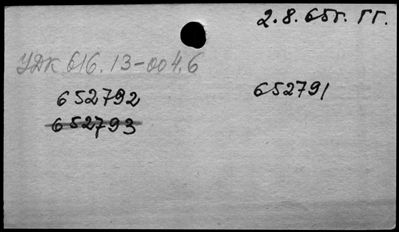 2.8.65г. ГГ.
УДК 616.13-004.6
652792 652791
652793